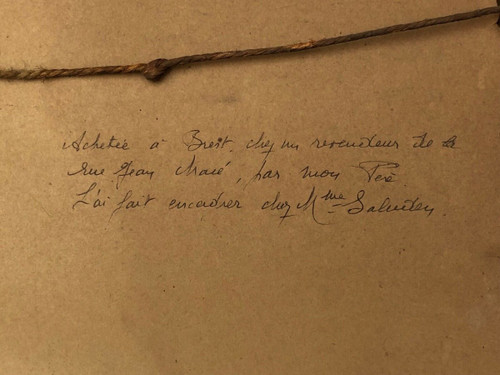 Achetée à Brest, chez un revendeur de la
rue Jean Macé, par mon Père
L'ai fait encadrer chez Mme